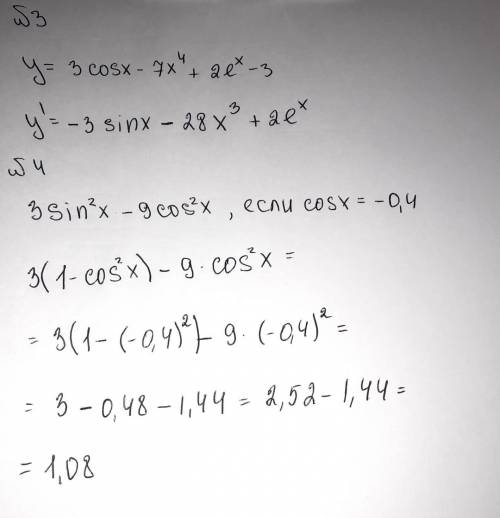 №3
y = 3 cosx - 7x⁴ + 2eˣ - 3
y' = -3 sinx - 28x³ + 2eˣ
№4
3 sin²x - 9 cos²x, если cosx = -0,4
3(1 - cos²x) - 9 · cos²x =
= 3(1 - (-0,4)²) - 9 · (-0,4)² =
= 3 - 0,48 - 1,44 = 2,52 - 1,44 =
= 1,08